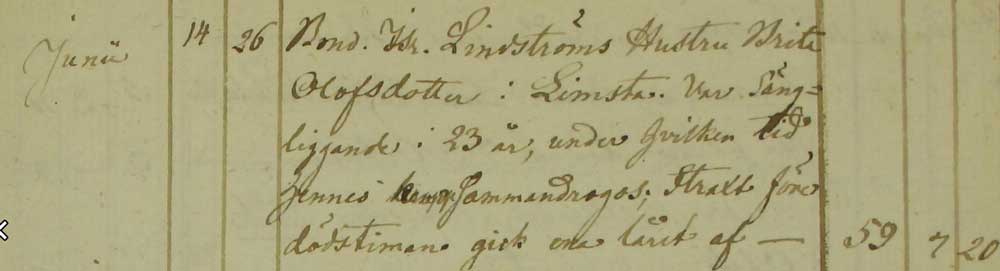 Junii 14 26 Bond. Isr. Lindströms Hustru Brita
Olofsdotter i Limsta. Var Säng=
liggande i 23 år, under hvilken tid
hennes sammandrogos; straxt före
dödstiman gick ena låret af — 59 7 20